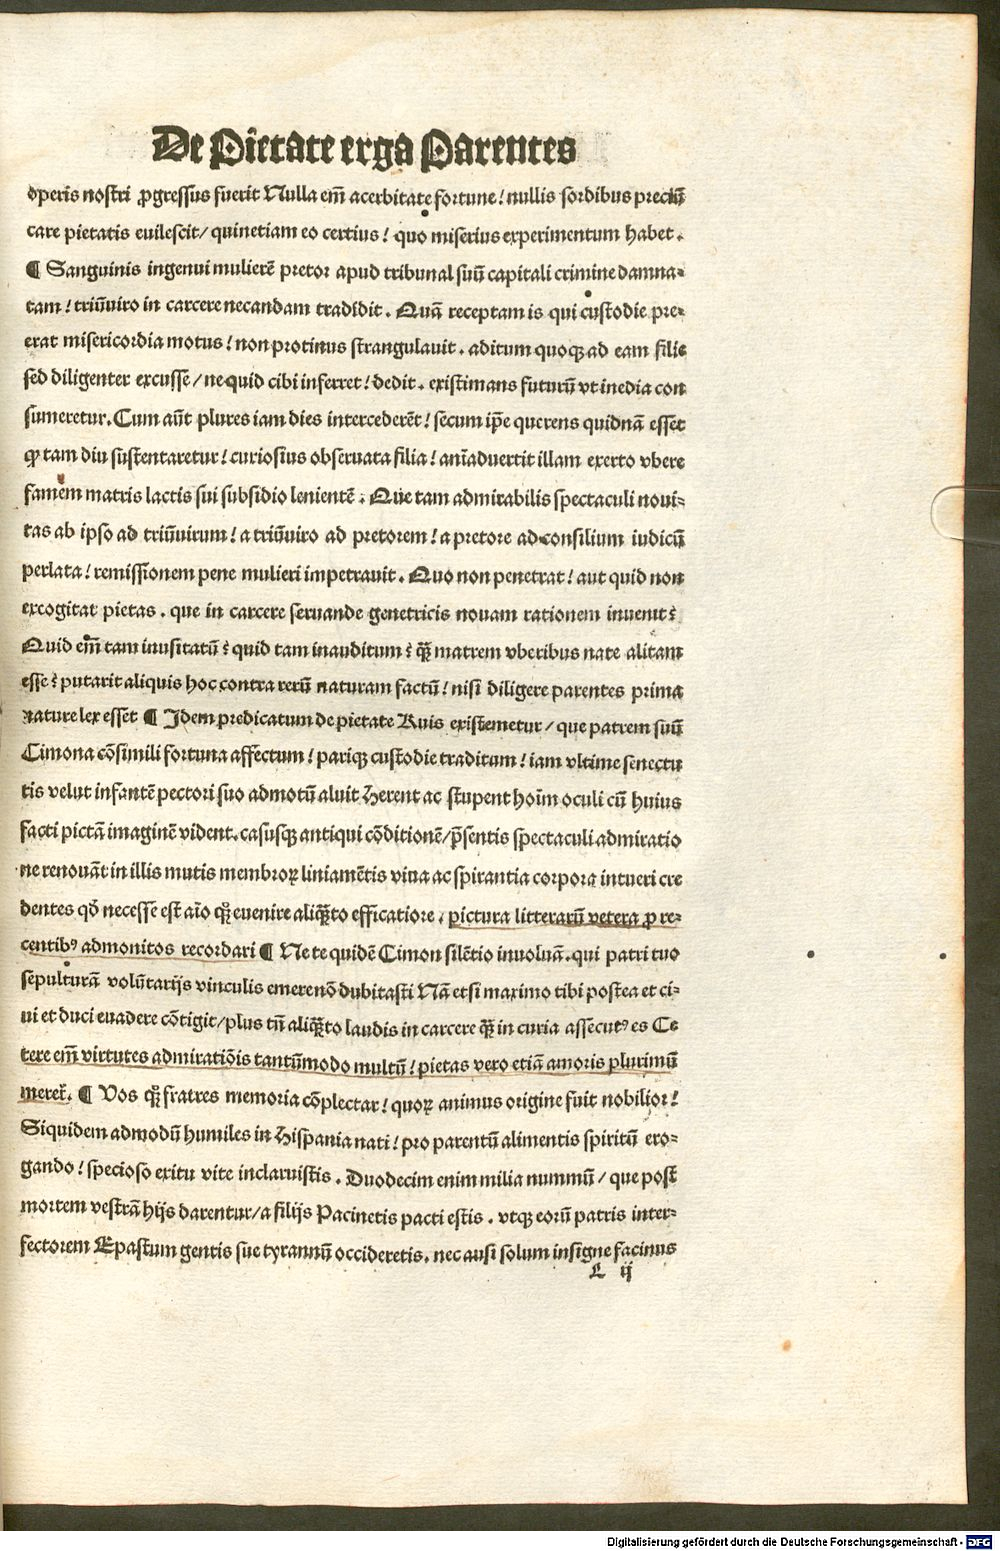 De Pietate erga Parentes
operis nostri ꝓgressus fuerit Nulla em̄ acerbitate fortune! nullis sordibus preciū
care pietatis euilescit/ quinetiam eo certius! quo miserius experimentum habet.
¶ Sanguinis ingenui mulierē pretor apud tribunal suū capitali crimine damna-
tam! triūuiro in carcere necandam tradidit. Quā receptam is qui custodie pre-
erat misericordia motus! non protinus strangulauit. aditum quoqꝫ ad eam filie
sed diligenter excusse/ ne quid cibi inferret! dedit. existimans futurū vt inedia con
sumeretur. Cum aūt plures iam dies intercederēt! secum ip̄e querens quidnā esset
ꝙ tam diu sustentaretur! curiosius obseruata filia! aīaduertit illam exerto vbere
famem matris lactis sui subsidio lenientē. Que tam admirabilis spectaculi noui-
tas ab ipso ad triūuirum! a triūuiro ad pretorem! a pretore ad consilium iudicū
perlata! remissionem pene mulieri impetrauit. Quo non penetrat! aut quid non
excogitat pietas. que in carcere seruande genetricis nouam rationem inuenit?
Quid em̄ tam inusitatū? quid tam inauditum? qꝫ̄ matrem vberibus nate alitam
esse? putarit aliquis hoc contra rerū naturam factū! nisi diligere parentes prima
nature lex esset ¶ Idem predicatum de pietate Ruis existemetur/ que patrem suū
Cimona cōsimili fortuna affectum! pariqꝫ custodie traditum! iam vltime senectu
tis velut infantē pectori suo admotū aluit Herent ac stupent hoīm oculi cū huius
facti pictā imaginē vident. casusqꝫ antiqui cōditionē/ p̄sentis spectaculi admiratio
ne renouāt in illis mutis membroꝝ liniamētis viua ac spirantia corpora intueri cre
dentes qď necesse est aīo qꝫ euenire aliqꝫ̄to efficatiore. pictura litterarū vetera ꝓ re-
centibꝰ admonitos recordari ¶ Ne te quidē Cimon silētio inuoluā. qui patri tuo
sepulturā volūtarijs vinculis emere nō dubitasti Nā etsi maximo tibi postea et ci-
ui et duci euadere cōtigit/ plus tn̄ aliqꝫ̄to laudis in carcere qꝫ̄ in curia assecutꝰ es Ce
tere em̄ virtutes admiratiōis tantūmodo multū! pietas vero etiā amoris plurimū
meret̄. ¶ Vos qꝫ fratres memoria cōplectar! quoꝝ animus origine fuit nobilior!
Siquidem admodū humiles in Hispania nati! pro parentū alimentis spiritū ero-
gando! specioso exitu vite inclaruistis. Duodecim enim milia nummū/ que post
mortem vestrā hijs darentur/ a filijs Pacinetis pacti estis. vtqꝫ eorū patris inter-
fectorem Epastum gentis sue tyrannū occideretis. nec ausi solum insigne facinus
L ij
Digitalisierung gefördert durch die Deutsche Forschungsgemeinschaft - DFG